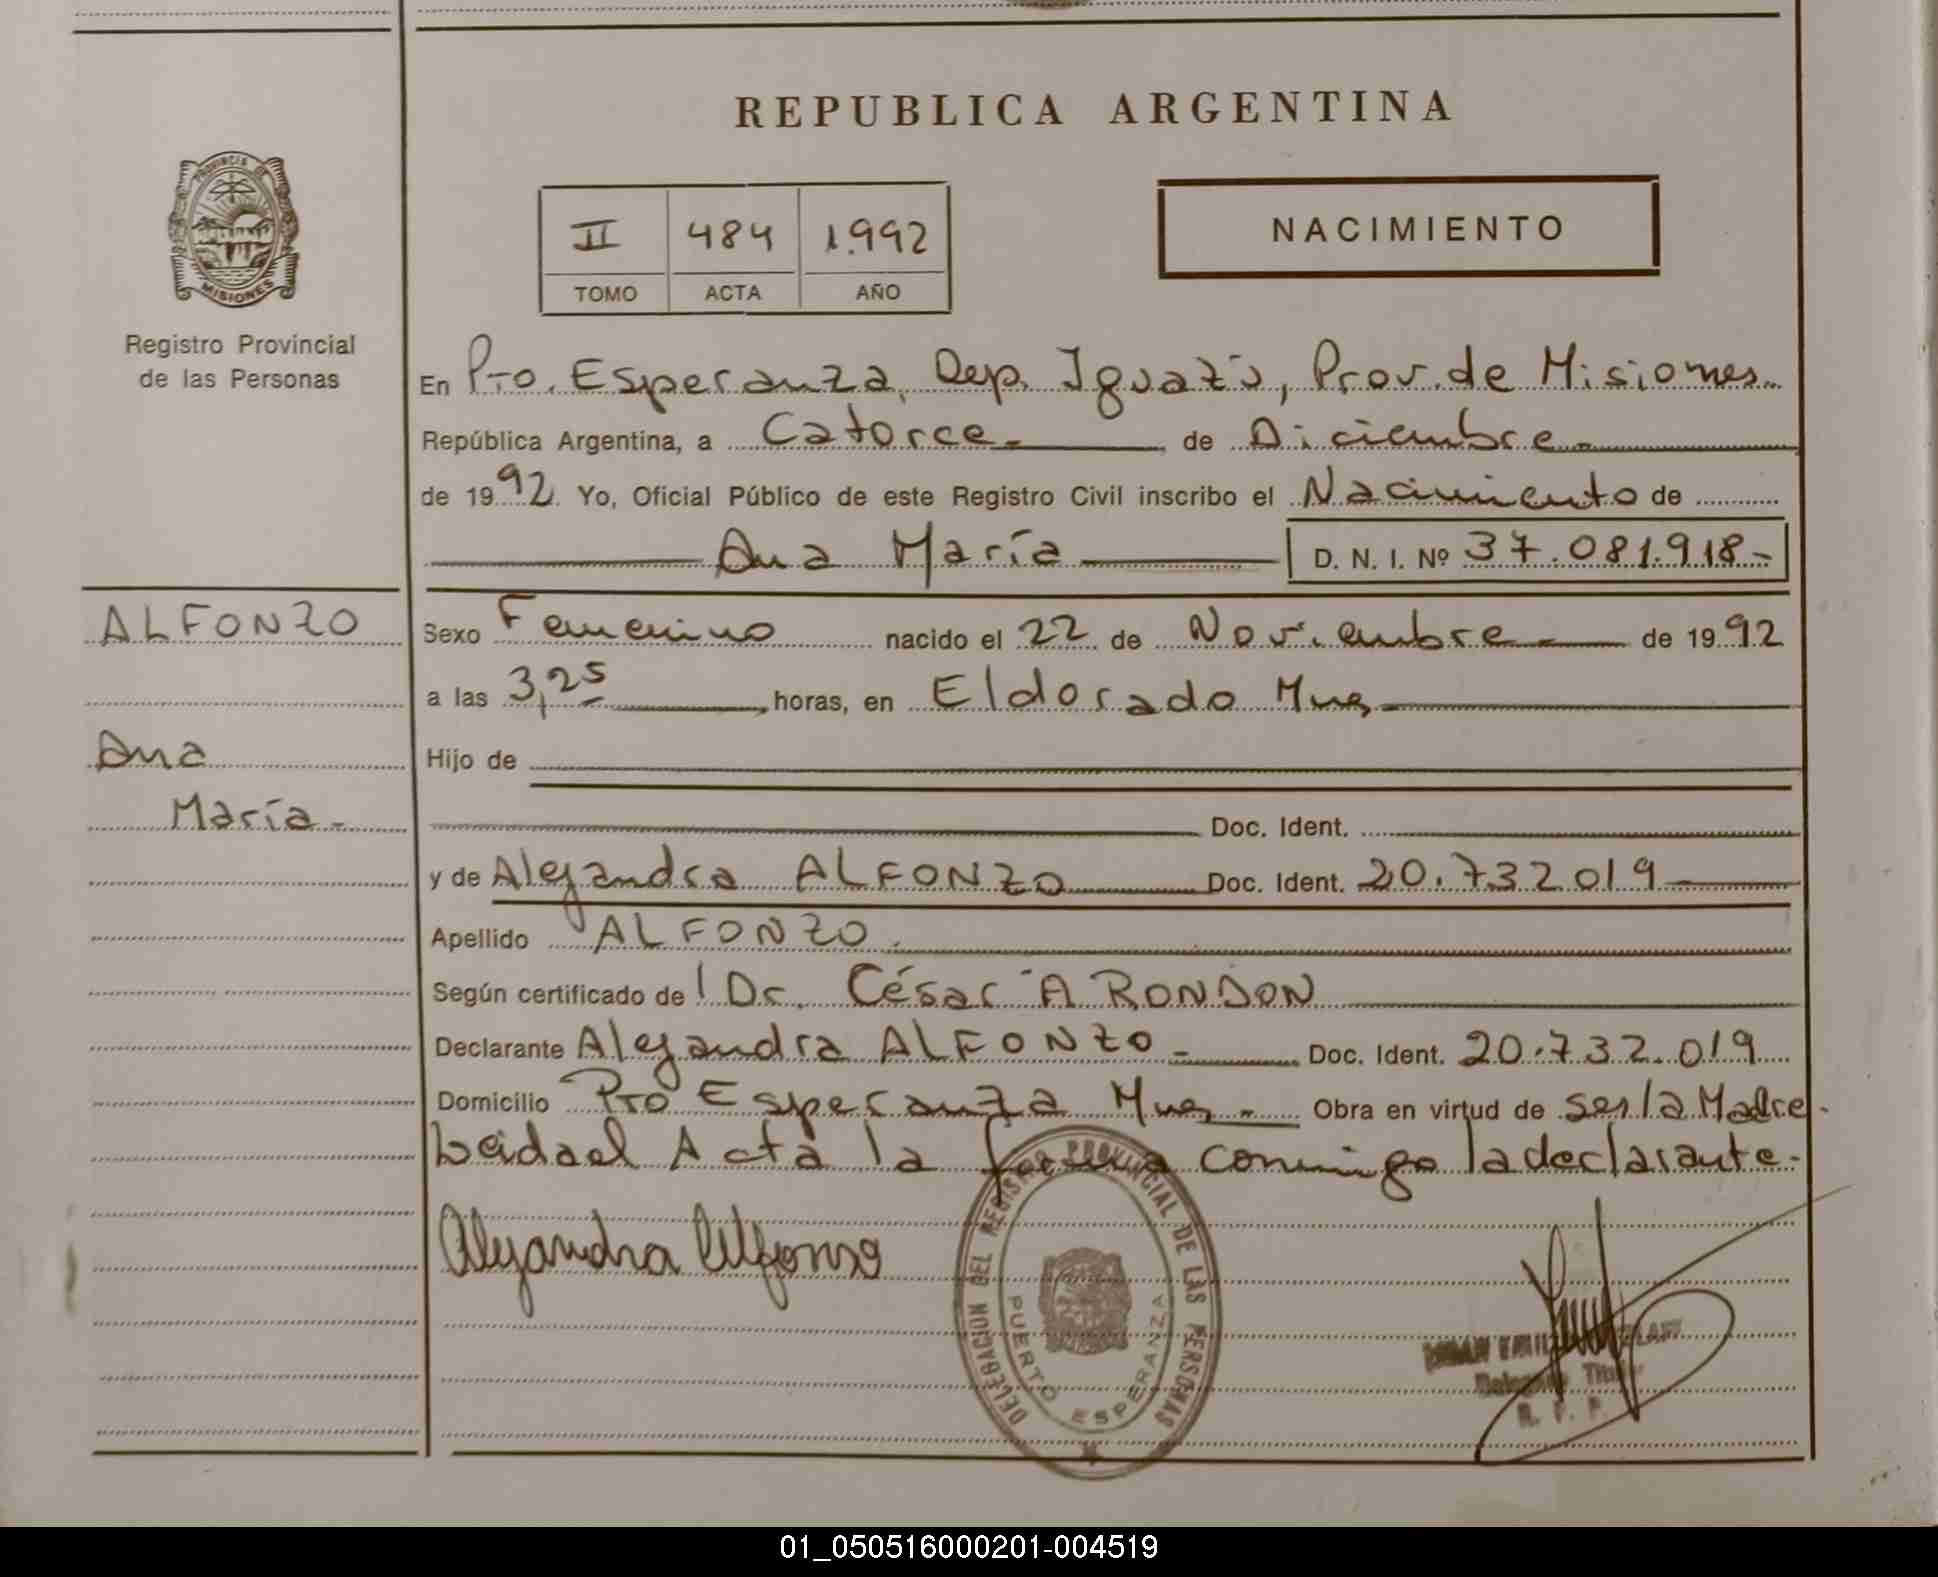 REPUBLICA ARGENTINA
PROVINCIA DE MISIONES
Registro Provincial
de las Personas
II 484 1.992
TOMO ACTA AÑO
NACIMIENTO
En Pto. Esperanza, Dep. Iguazú, Prov. de Misiones
República Argentina, a Catorce de Diciembre
de 1992 Yo, Oficial Público de este Registro Civil inscribo el Nacimiento de
Ana María D. N. I. Nº 37.081.918.-
ALFONZO
Ana
María.-
Sexo Femenino nacido el 22 de Noviembre de 1992
a las 3,25 horas, en Eldorado Mnes
Hijo de
Doc. Ident.
y de Alejandra ALFONZO Doc. Ident. 20.732019
Apellido ALFONZO.
Según certificado de Dr. César A RONDON
Declarante Alejandra ALFONZO.- Doc. Ident. 20.732.019
Domicilio Pto Esperanza Mnes - Obra en virtud de ser la Madre.
Leida el Acta la firma conmigo la declarante.
Alejandra Alfonso
DELEGACION DEL REGISTRO PROVINCIAL DE LAS PERSONAS
PUERTO ESPERANZA
Titular
R. P. P.
01_050516000201-004519